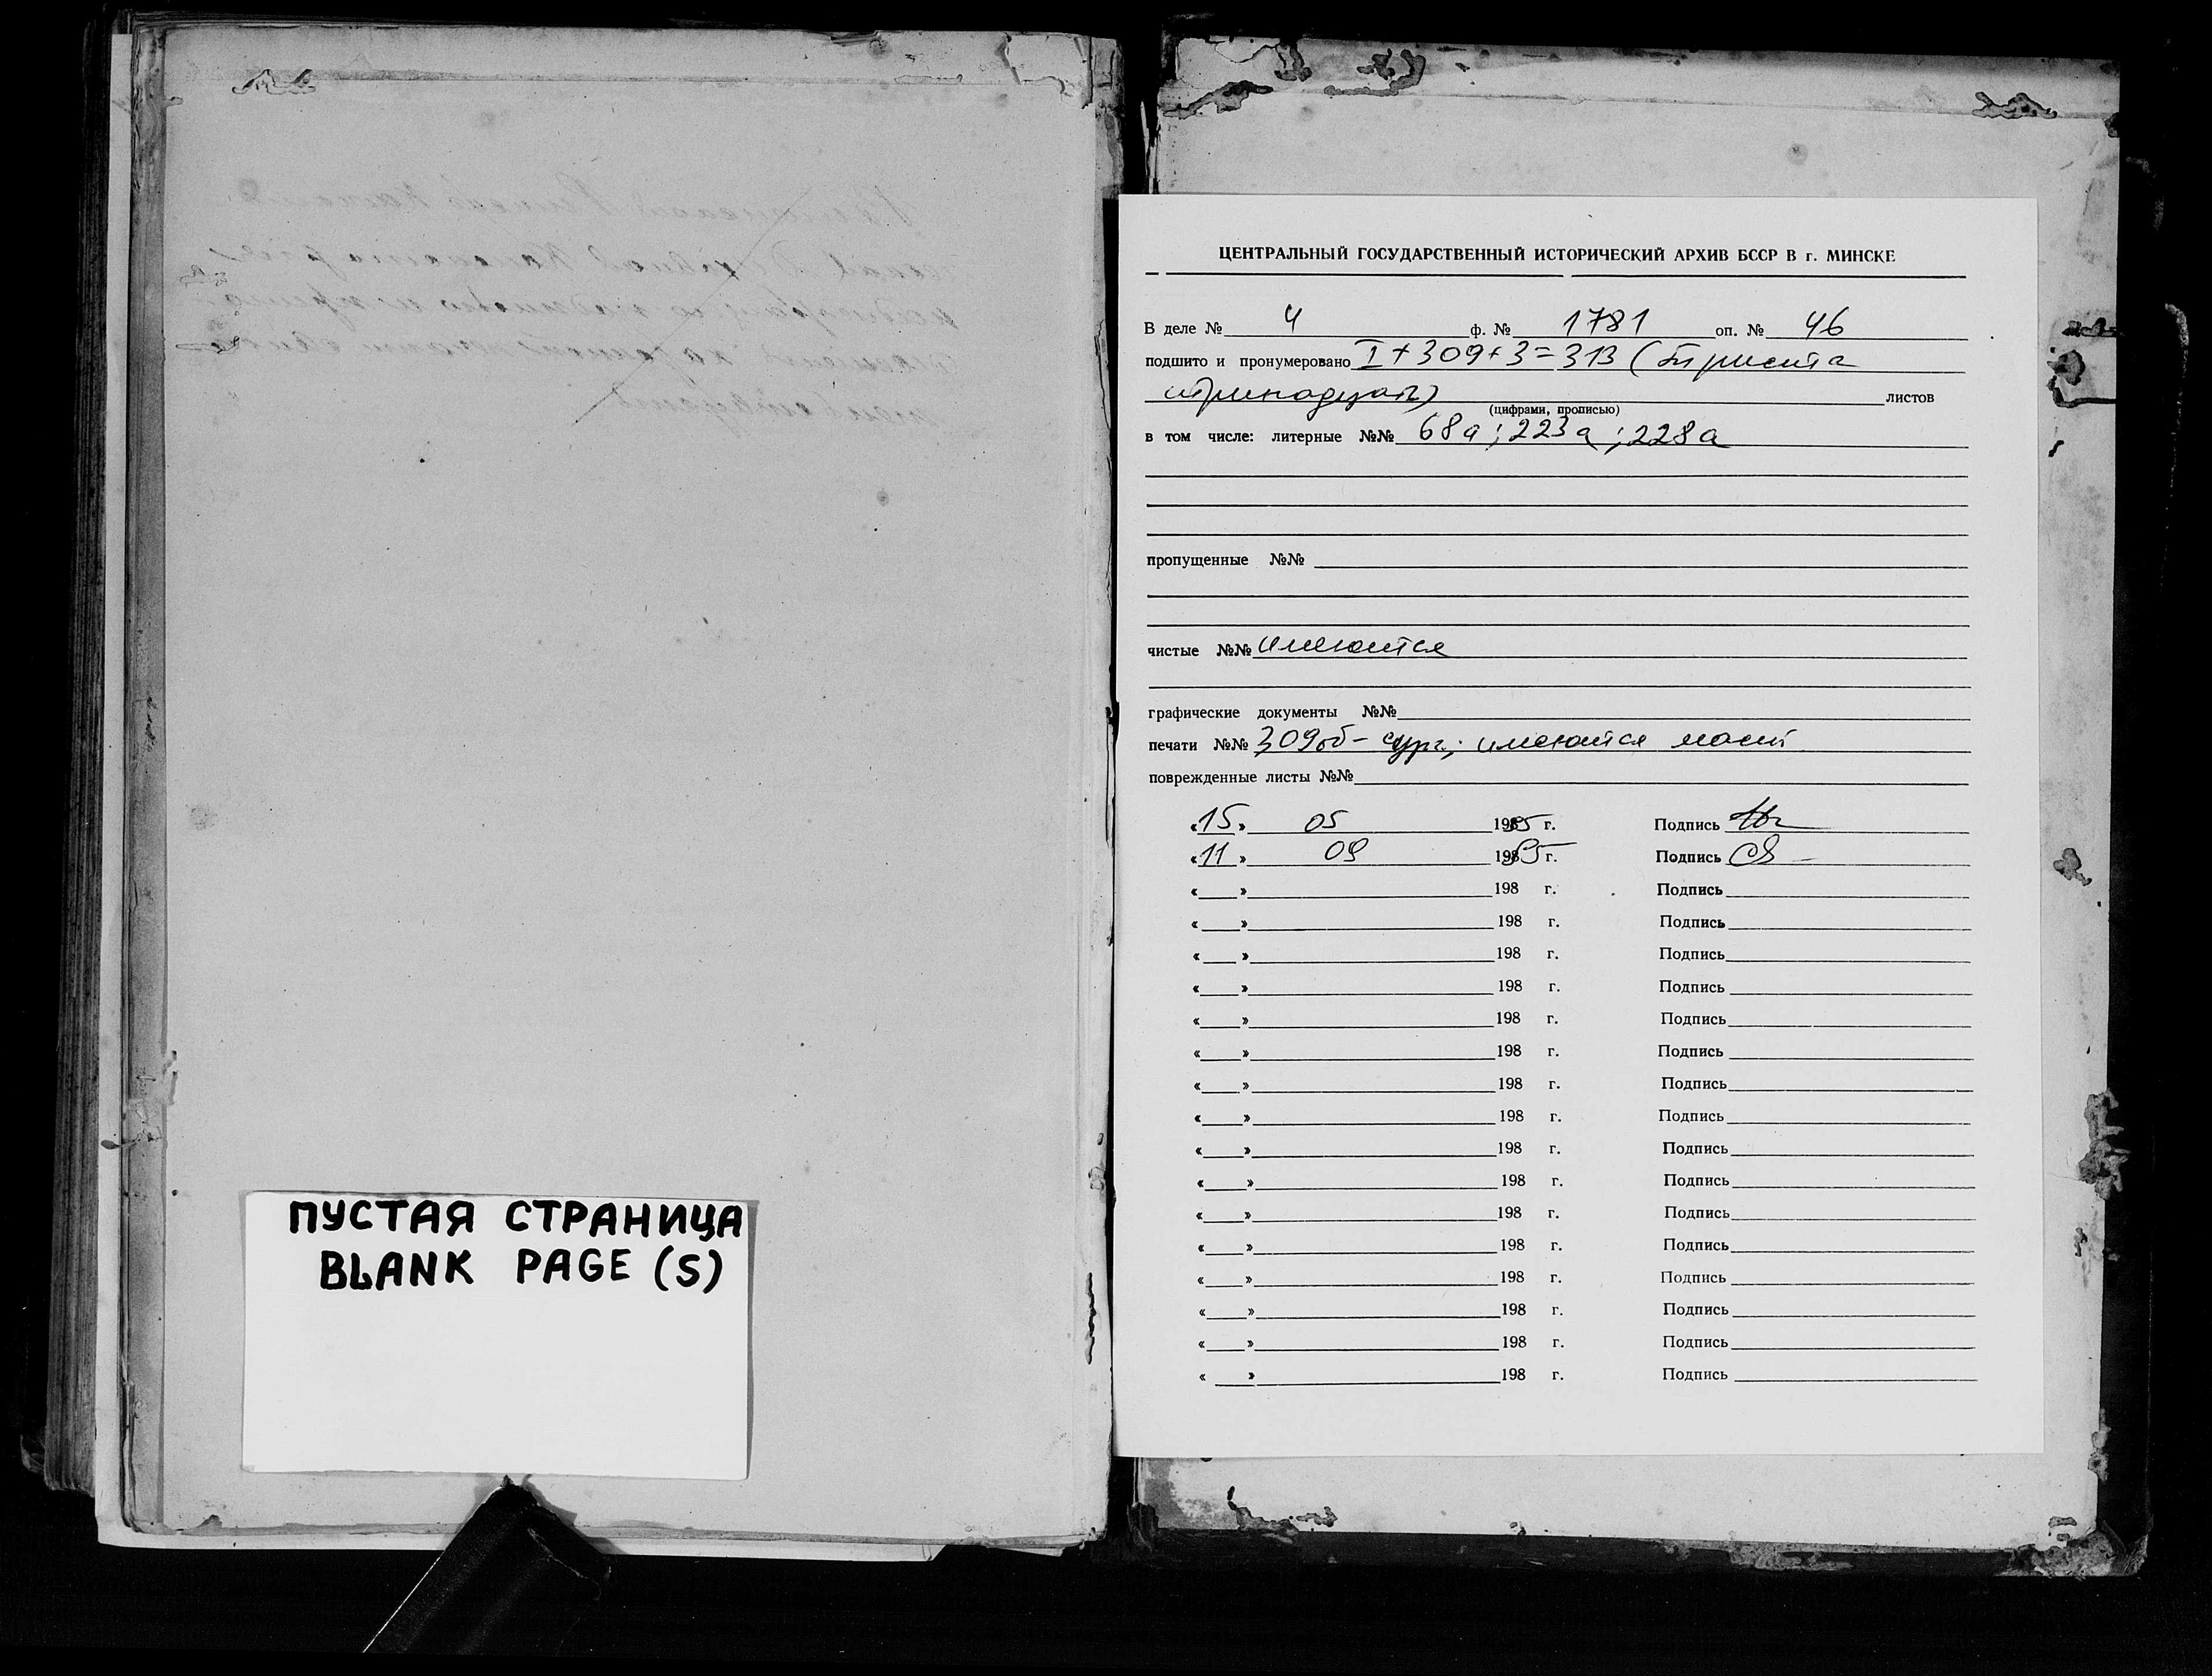 ПУСТАЯ СТРАНИЦА
BLANK PAGE (S)
ЦЕНТРАЛЬНЫЙ ГОСУДАРСТВЕННЫЙ ИСТОРИЧЕСКИЙ АРХИВ БССР В г. МИНСКЕ
В деле № 4 ф. № 1781 оп. № 46
подшито и пронумеровано I+309+3=313 (триста
тринадцать) листов
(цифрами, прописью)
в том числе: литерные №№ 68а; 223а; 228а
пропущенные №№
чистые №№ имеются
графические документы №№
печати №№ 309об- сург; имеются маст
поврежденные листы №№
«15» 05 1985 г. Подпись
«11» 09 1985 г. Подпись
«   » 198 г. Подпись
«   » 198 г. Подпись
«   » 198 г. Подпись
«   » 198 г. Подпись
«   » 198 г. Подпись
«   » 198 г. Подпись
«   » 198 г. Подпись
«   » 198 г. Подпись
«   » 198 г. Подпись
«   » 198 г. Подпись
«   » 198 г. Подпись
«   » 198 г. Подпись
«   » 198 г. Подпись
«   » 198 г. Подпись
«   » 198 г. Подпись
«   » 198 г. Подпись